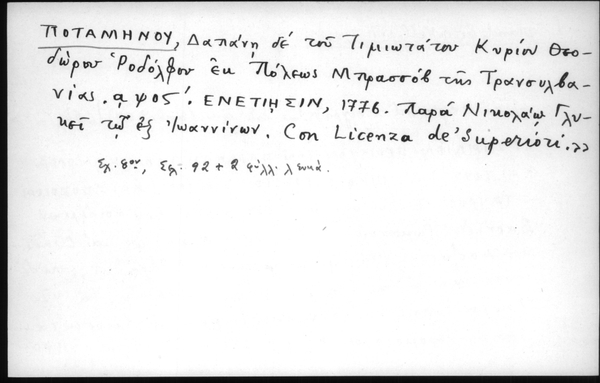 ΠΟΤΑΜΗΝΟΥ, Δαπάνῃ δέ τοῦ Τιμιωτάτου Κυρίου Θεο-
δώρου Ῥοδόλφου ἐκ Πόλεως Μπρασσόβ τῆς Τρανσυλβα-
νίας. αψος΄. ΕΝΕΤΙΗΣΙΝ, 1776. Παρά Νικολάῳ Γλυ-
κεῖ τῷ ἐξ Ἰωαννίνων. Con Licenza de' Superiori.»
Σχ. 8ον, Σελ. 92 + 2 φύλλ. λευκά.